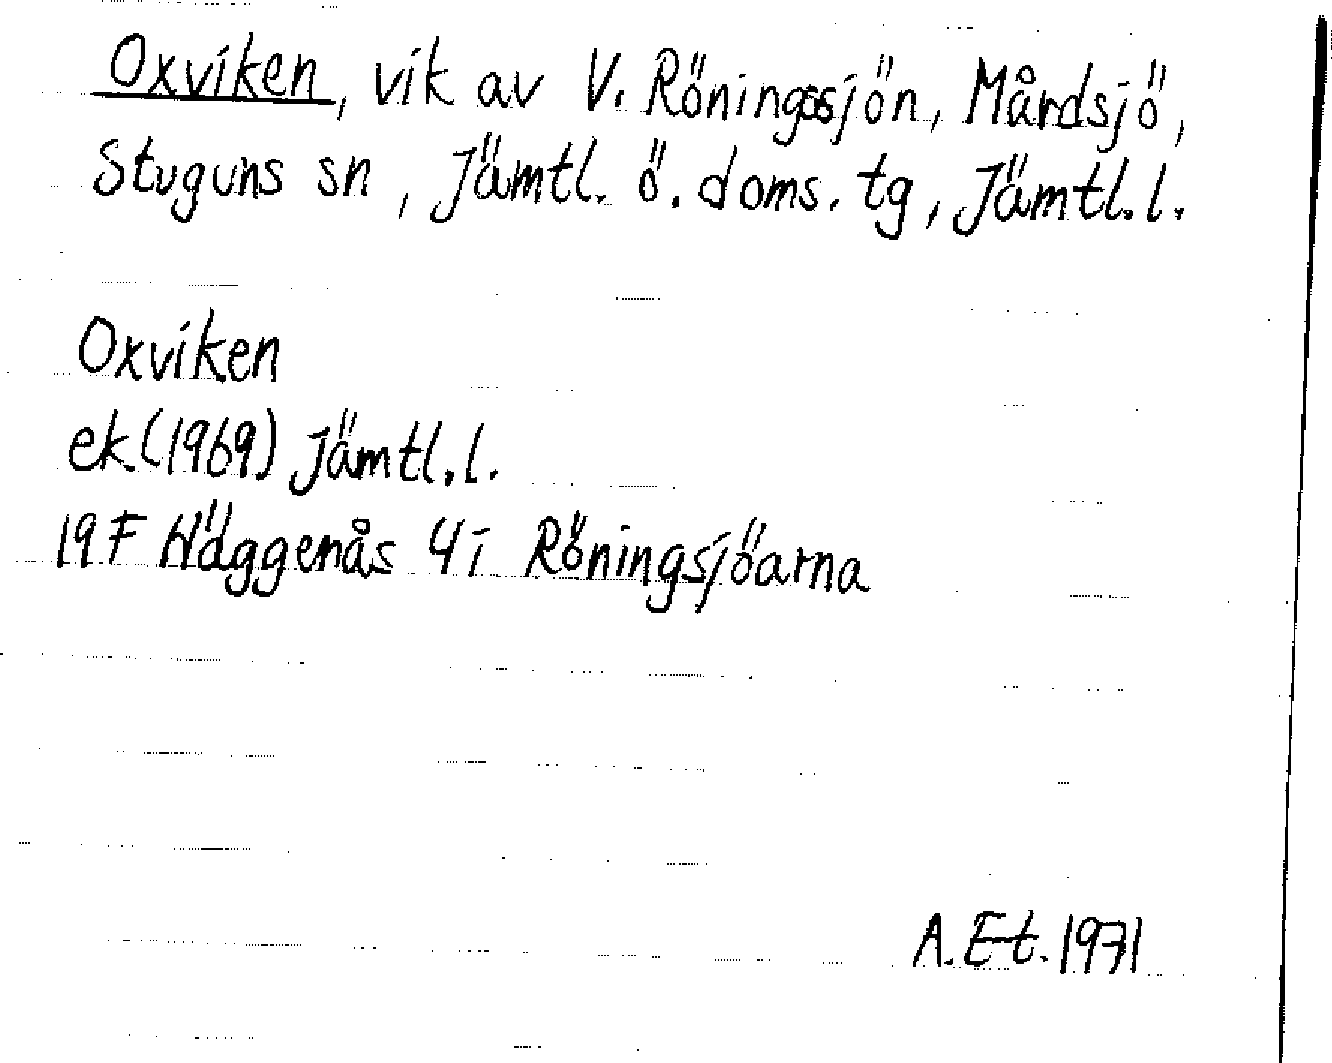 Oxviken, vik av V. Röningssjön, Mårdsjö,
Stuguns sn, Jämtl. ö. doms. tg, Jämtl.l.
Oxviken
ek (1969) Jämtl.l.
19F Häggenås 4i Röningsjöarna
A.E-t. 1971